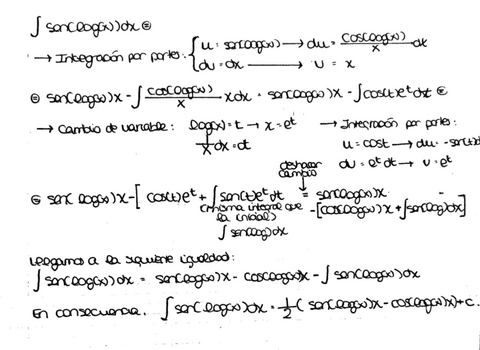 ∫ sen(log(x)) dx =
→ Integración por partes: { u = sen(log(x)) → du = cos(log(x))/x dt
dv = dx → v = x
= sen(log(x))x - ∫ cos(log(x))/x x dx = sen(log(x))x - ∫cos(t)e^t dt =
→ Cambio de variable: log(x) = t → x = e^t → Integración por partes:
1/x dx = dt u = cost → du = -sen(t)
deshacer dv = e^t dt → v = e^t
cambio
= sen(log(x))x - [cos(t)e^t + ∫sen(t)e^t dt = sen(log(x))x
(misma integral que - [cos(log(x))x + ∫sen(log)dx]
la inicial)
∫ sen(log)dx
Llegamos a la siguiente igualdad:
∫sen(log(x))dx = sen(log(x))x - cos(log(x))x - ∫sen(log(x))dx
En consecuencia, ∫sen(log(x))dx = 1/2 (sen(log(x))x - cos(log(x))x) + c.